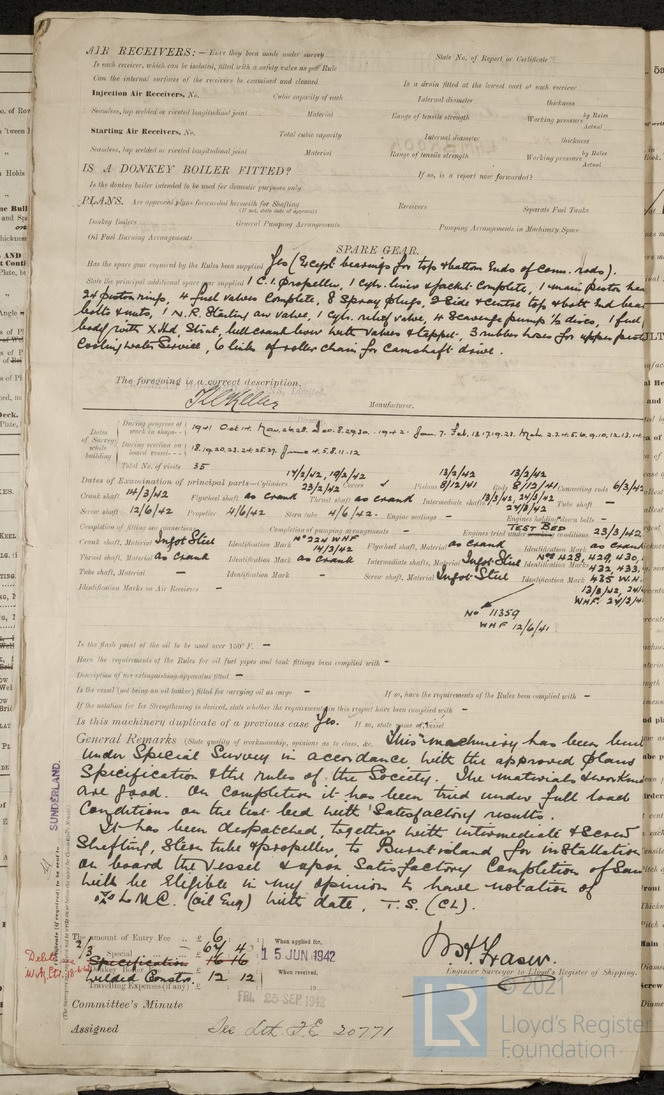 AIR RECEIVERS:— Have they been made under survey State No. of Report or Certificate
Is each receiver, which can be isolated, fitted with a safety valve as per Rule
Can the internal surfaces of the receivers be examined and cleaned Is a drain fitted at the lowest part of each receiver
Injection Air Receivers, No. Cubic capacity of each Internal diameter thickness
Seamless, lap welded or riveted longitudinal joint Material Range of tensile strength Working pressure by Rules Actual
Starting Air Receivers, No. Total cubic capacity Internal diameter thickness
Seamless, lap welded or riveted longitudinal joint Material Range of tensile strength Working pressure by Rules Actual
IS A DONKEY BOILER FITTED? If so, is a report now forwarded?
Is the donkey boiler intended to be used for domestic purposes only
PLANS. Are approved plans forwarded herewith for Shafting Receivers Separate Fuel Tanks
(If not, state date of approval)
Donkey Boilers General Pumping Arrangements Pumping Arrangements in Machinery Space
Oil Fuel Burning Arrangements
SPARE GEAR.
Has the spare gear required by the Rules been supplied Yes (Except bearings for top & bottom Ends of Conn. rods).
State the principal additional spare gear supplied 1 C.I. propeller, 1 cyl. liner & jacket complete, 1 main piston
24 piston rings, 4 fuel valves complete, 8 spray plugs, 2 side & centre top & bott. End
bolts & nuts, 1 N.R. Starting air valve, 1 cyl. relief valve, 4 Scavenge pump discs, 1 fuel
body with
Cooling water Service, 6 links of roller chain for Camshaft drive.
The foregoing is a correct description,
Manufacturer.
Dates of Survey while building During progress of work in shops 1941 Oct 14. Nov. 26.28. Dec. 8.29.30. 1942. Jan. 7. Feb. 13.17.19.23.
During erection on board vessel 18.19.20.23.24.25.27. June 4.5.8.11.12
Total No. of visits 35
Dates of Examination of principal parts—Cylinders 14/2/42, 19/2/42 23/2/42 Covers ✓ Pistons 13/2/42 8/12/41 Rods 13/2/42 8/12/41 Connecting rods 6/3/42
Crank shaft 14/3/42 Flywheel shaft as crank Thrust shaft as crank Intermediate shafts 13/3/42, 24/3/42 24/3/42 Tube shaft —
Screw shaft 12/6/42 Propeller 4/6/42 Stern tube 4/6/42. Engine seatings — Engines holding down bolts —
Completion of fitting sea connections Completion of pumping arrangements — Engines tried under TEST BED conditions 23/3/42
Crank shaft, Material Ingot Steel Identification Mark No 224 WHF 14/3/42 Flywheel shaft, Material as crank Identification Mark as crank
Thrust shaft, Material as crank Identification Mark as crank Intermediate shafts, Material Ingot Steel Identification Marks Nos 428, 429, 430, 432, 433,
Tube shaft, Material — Identification Mark — Screw shaft, Material Ingot Steel Identification Mark 435 W.H.
Identification Marks on Air Receivers — 13/3/42, 24/
WHF. 24/3/4
No 11359
WHF 12/6/41
Is the flash point of the oil to be used over 150° F. —
Have the requirements of the Rules for oil fuel pipes and tank fittings been complied with —
Description of fire extinguishing apparatus fitted —
Is the vessel (not being an oil tanker) fitted for carrying oil as cargo — If so, have the requirements of the Rules been complied with —
If the notation for Ice Strengthening is desired, state whether the requirements in this respect have been complied with —
Is this machinery duplicate of a previous case Yes. If so, state name of vessel
General Remarks (State quality of workmanship, opinions as to class, &c. This machinery has been built
under Special Survey in accordance with the approved plans
Specification & the rules of the Society. The materials &
are good. On completion it has been tried under full load
Conditions on the test bed with Satisfactory results.
It has been despatched, together with intermediate & Screw
Shafting, Stern tube & propeller, to Burntisland for installation
on board the vessel & upon Satisfactory Completion of
will be Eligible in my opinion to have notation of
L.M.C. (oil Eng) with date, T.S. (CL).
SUNDERLAND.
The amount of Entry Fee .. £ 6
2/3 Special .. .. £ 67 4 When applied for,
Specification 16 16 15 JUN 1942
Donkey Boiler Fee
Welded Constr. 12 12 When received,
Travelling Expenses (if any) £ 19
W.H. Fraser.
Engineer Surveyor to Lloyd's Register of Shipping.
Committee's Minute FRI. 25 SEP 1942
Assigned See Lth. F.E. 20771
© 2021
LR
Lloyd's Register
Foundation